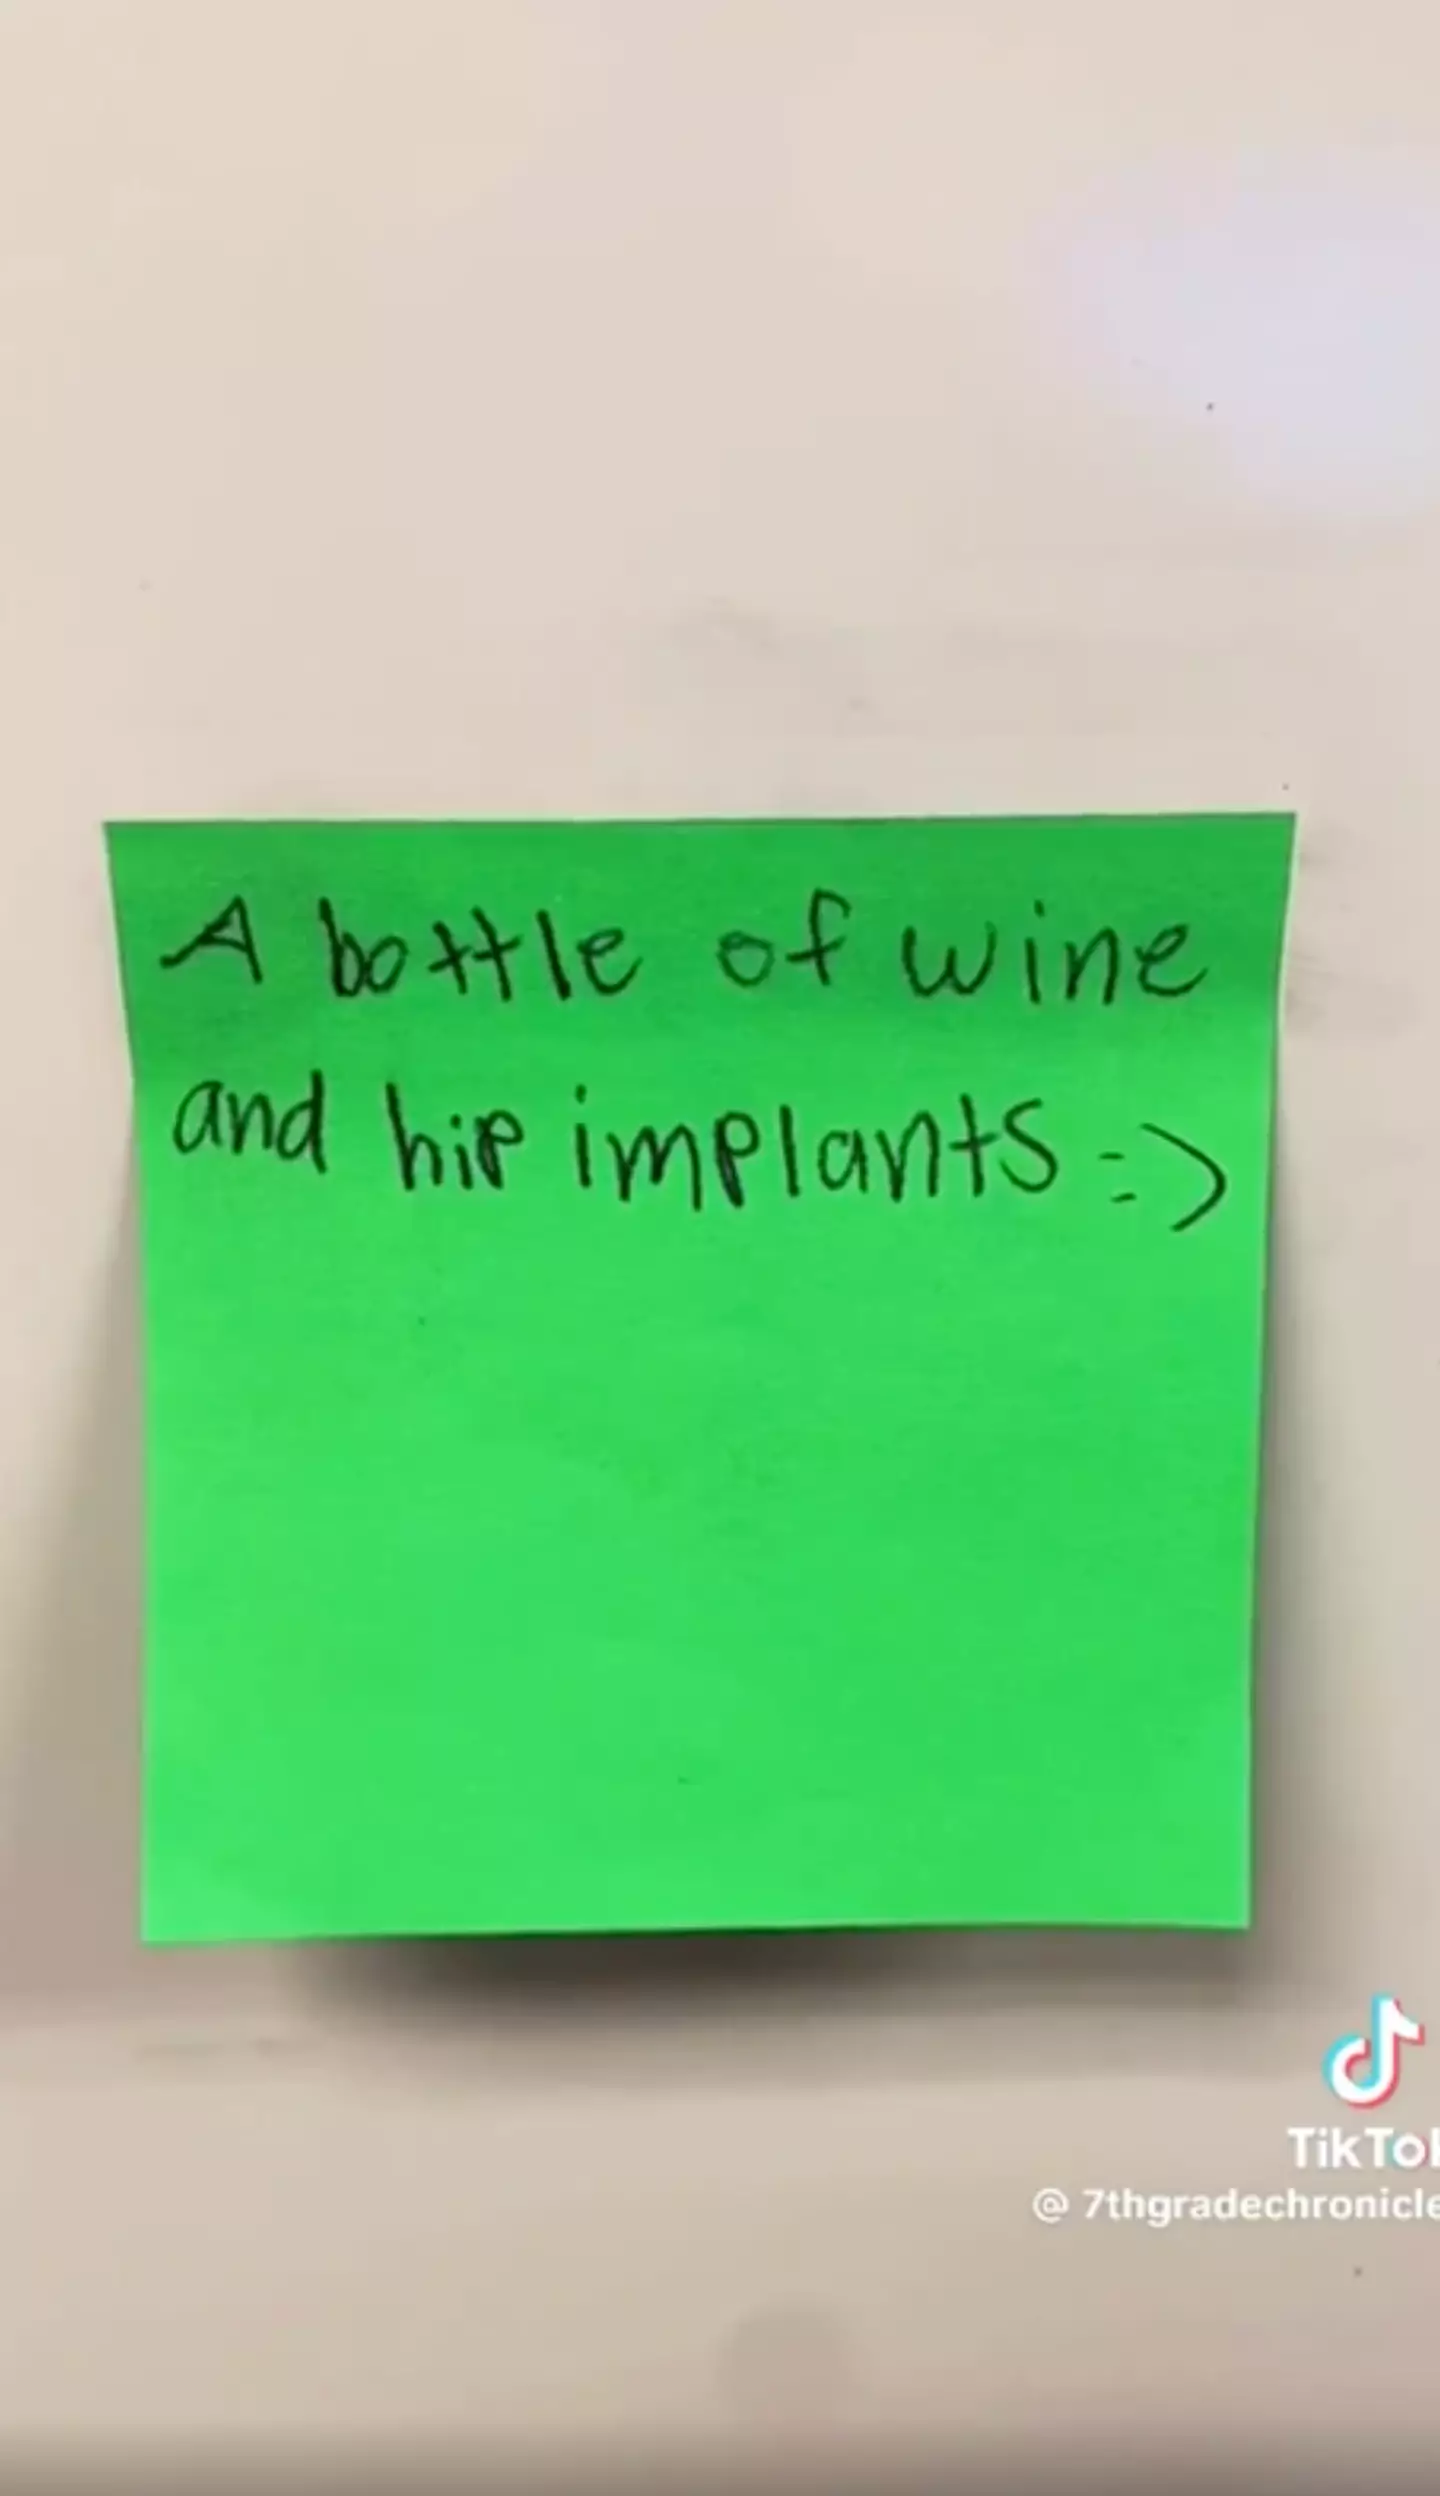 A bottle of wine
and hip implants :)
TikTok
@ 7thgradechronicle